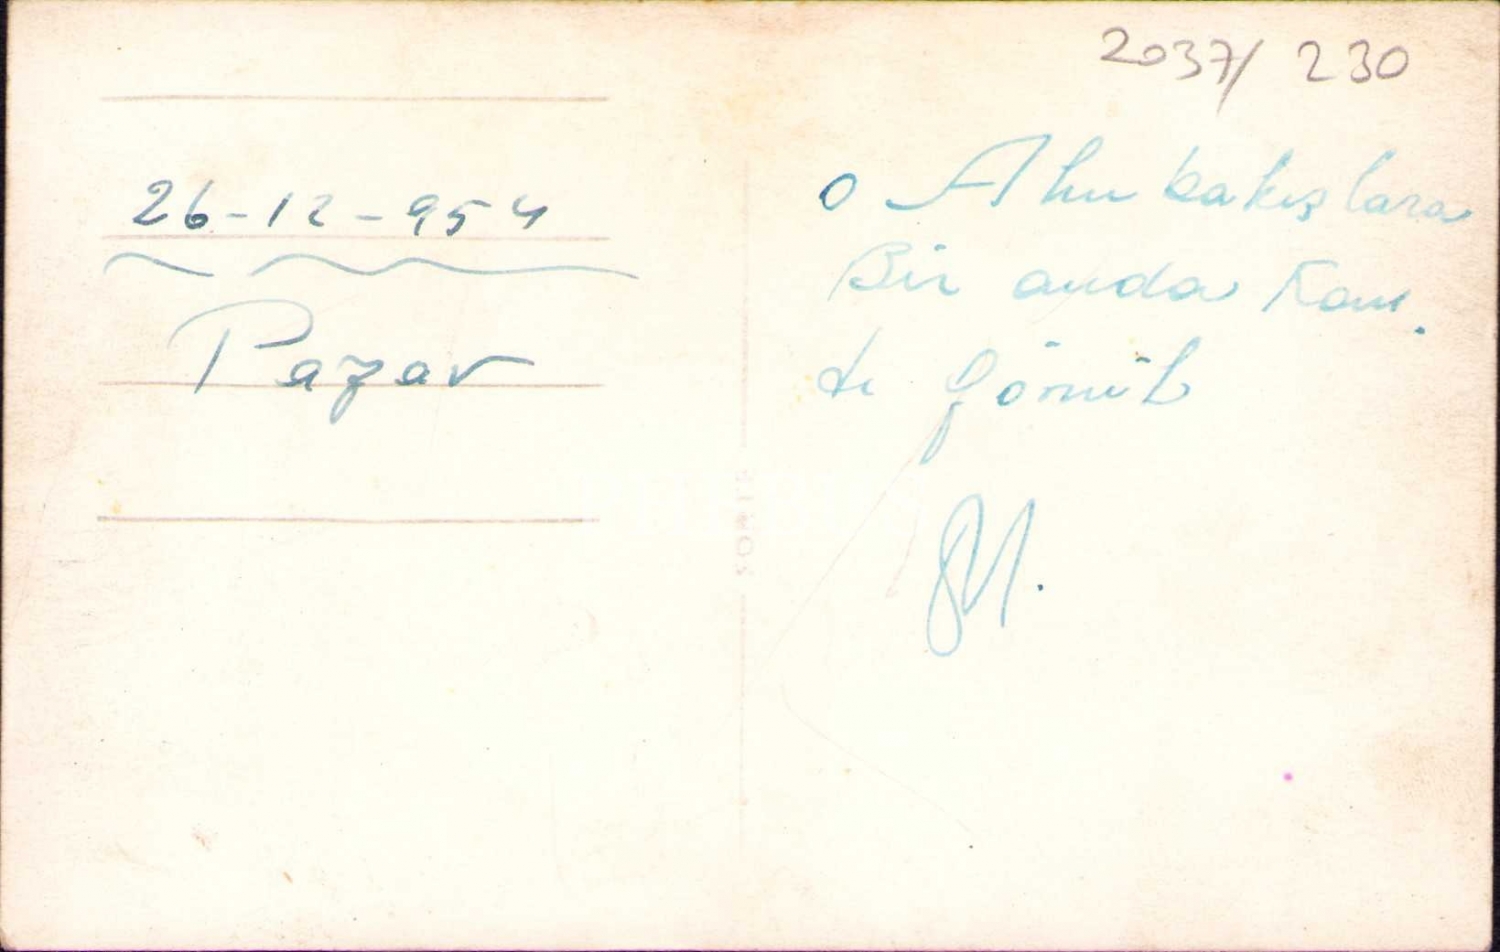 2037/ 230
26-12-954
Pazar
o Ahu bakışlara
Bir anda kan
dı gönül